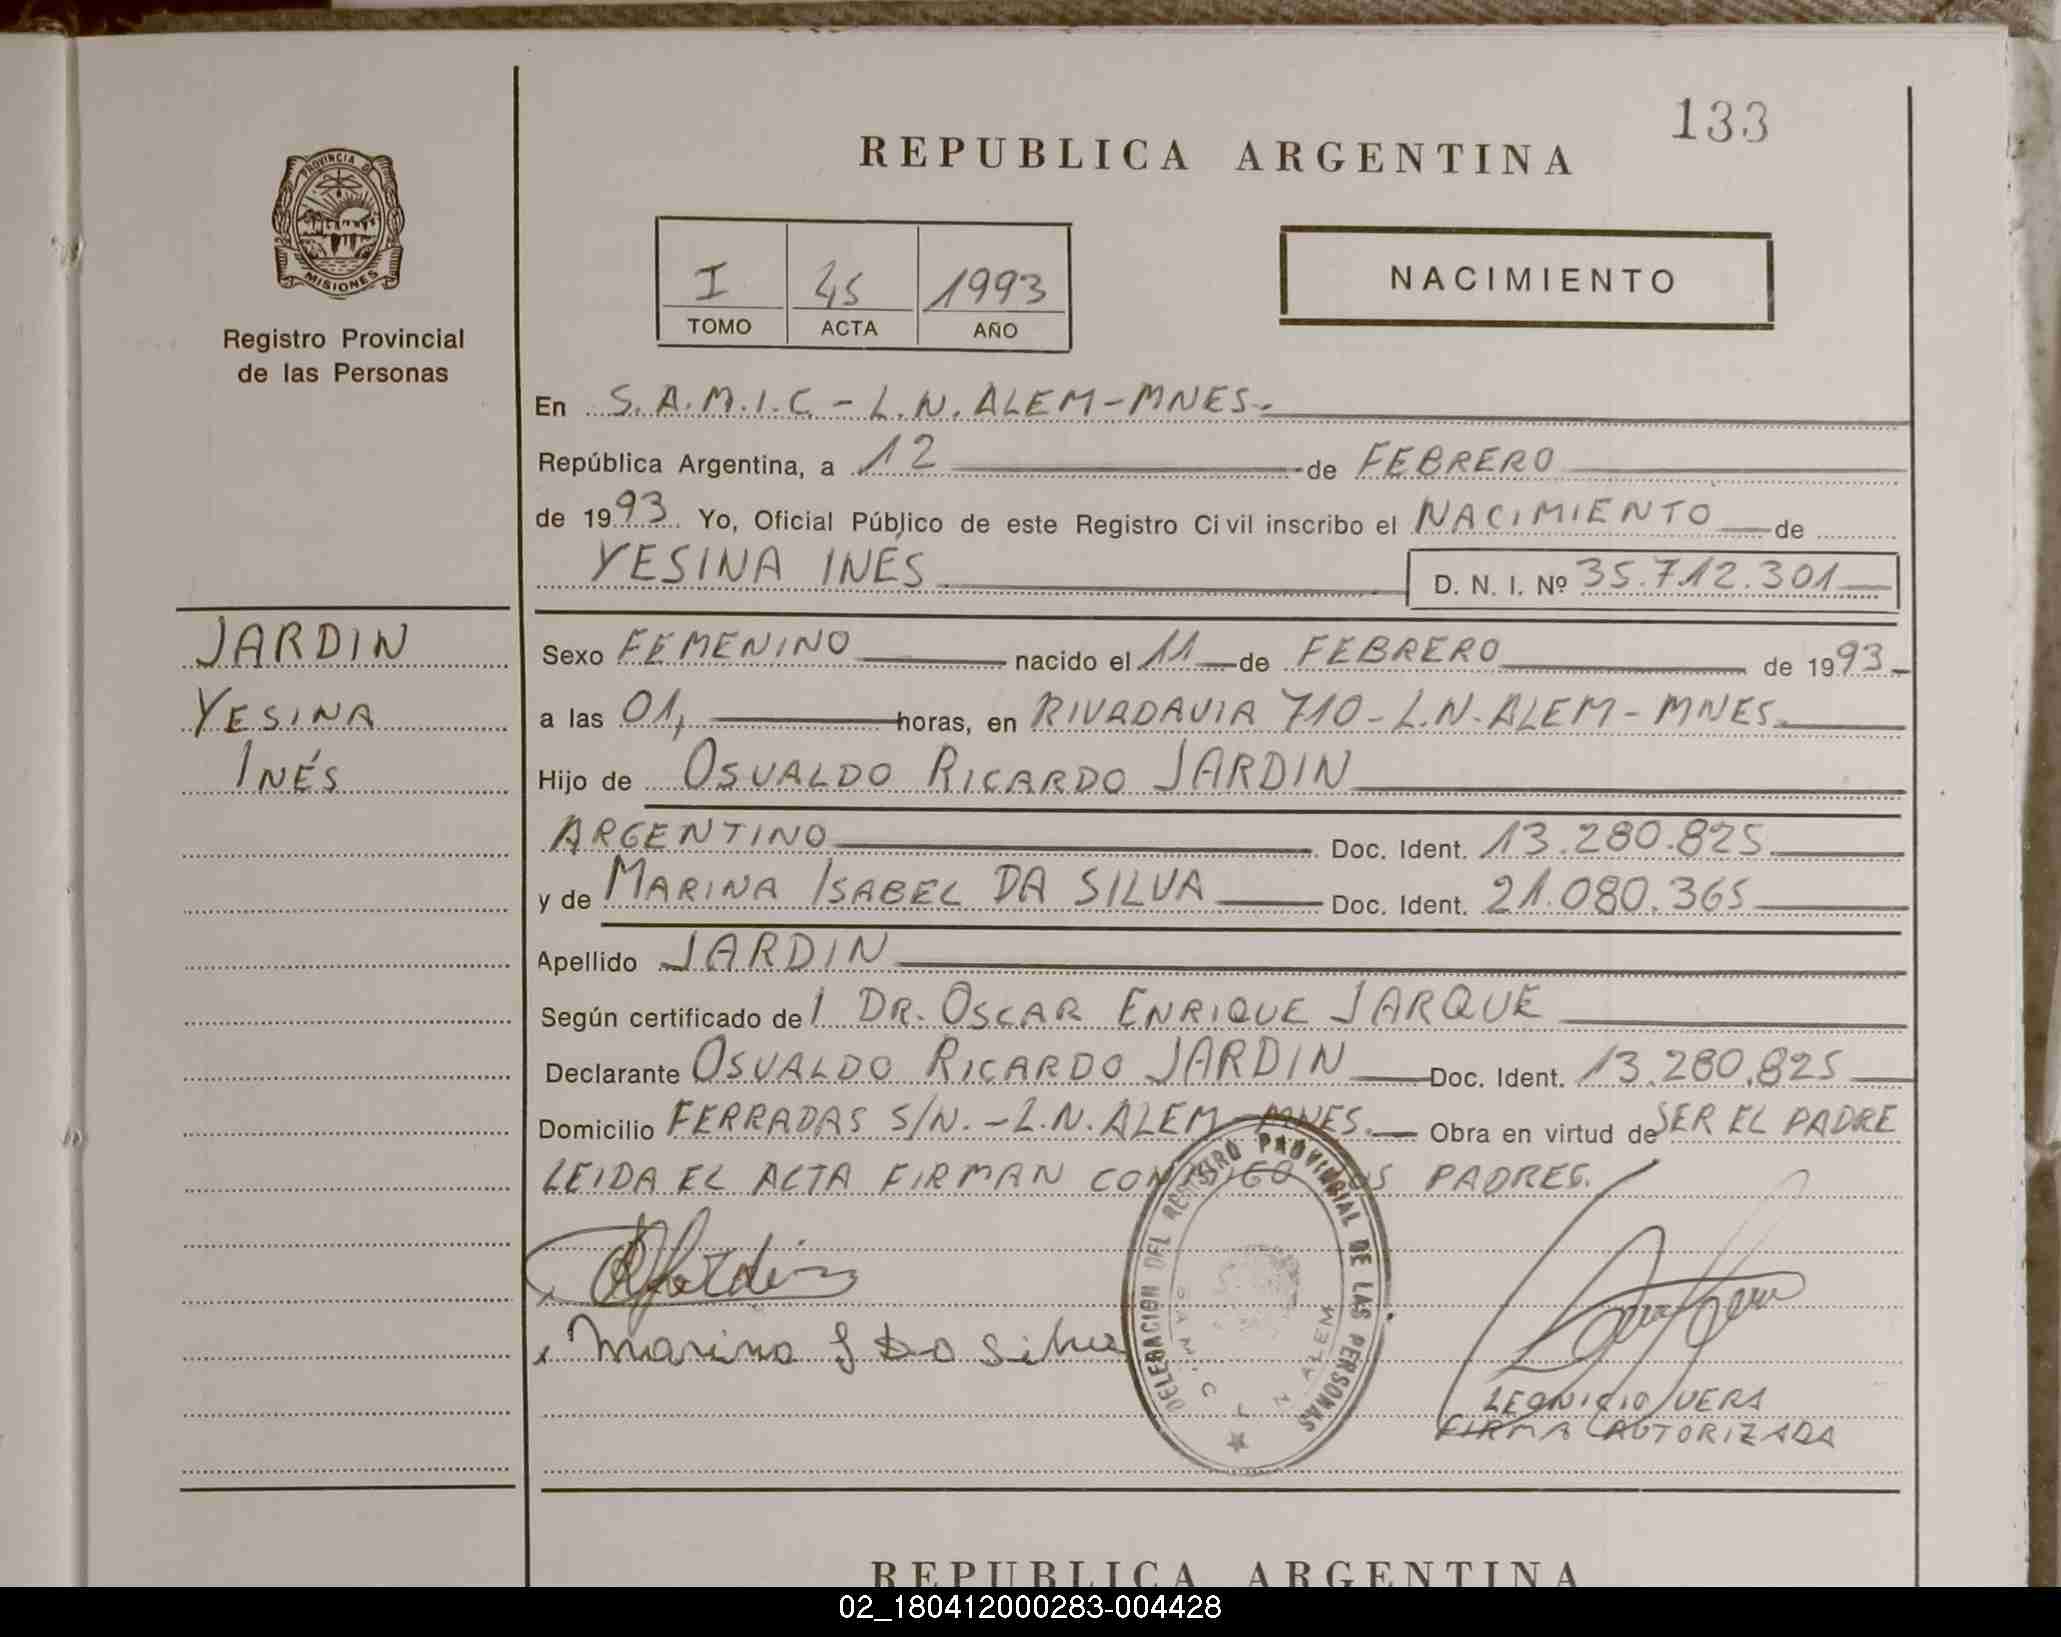 133
REPUBLICA ARGENTINA
PROVINCIA D MISIONES
Registro Provincial
de las Personas
I 45 1993
TOMO ACTA AÑO
NACIMIENTO
En S.A.M.I.C. - L.N. ALEM - MNES.
República Argentina, a 12 de FEBRERO
de 1993. Yo, Oficial Público de este Registro Civil inscribo el NACIMIENTO de
YESINA INÉS D. N. I. Nº 35.712.301
JARDIN
YESINA
INÉS
Sexo FEMENINO nacido el 11 de FEBRERO de 1993
a las 01, horas, en RIVADAVIA 710 - L.N. ALEM - MNES.
Hijo de OSVALDO RICARDO JARDIN
ARGENTINO Doc. Ident. 13.280.825
y de MARINA ISABEL DA SILVA Doc. Ident. 21.080.365
Apellido JARDIN
Según certificado del DR. OSCAR ENRIQUE JARQUE
Declarante OSVALDO RICARDO JARDIN Doc. Ident. 13.280.825
Domicilio FERRADAS S/N. - L.N. ALEM - MNES. Obra en virtud de SER EL PADRE
LEIDA EL ACTA FIRMAN CONMIGO LOS PADRES.
DELEGACION DEL REGISTRO PROVINCIAL DE LAS PERSONAS
S.A.M.I.C. L N ALEM
Marina I Da Silva
LEONICIO VERA
FIRMA AUTORIZADA
REPUBLICA ARGENTINA
02_180412000283-004428